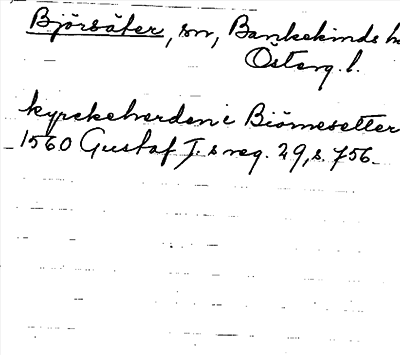 Björsäter, sn, Bankekinds h
Österg. l.
kyrckeherden i Biörnesetter
1560 Gustaf I.s reg. 29, s. 756.